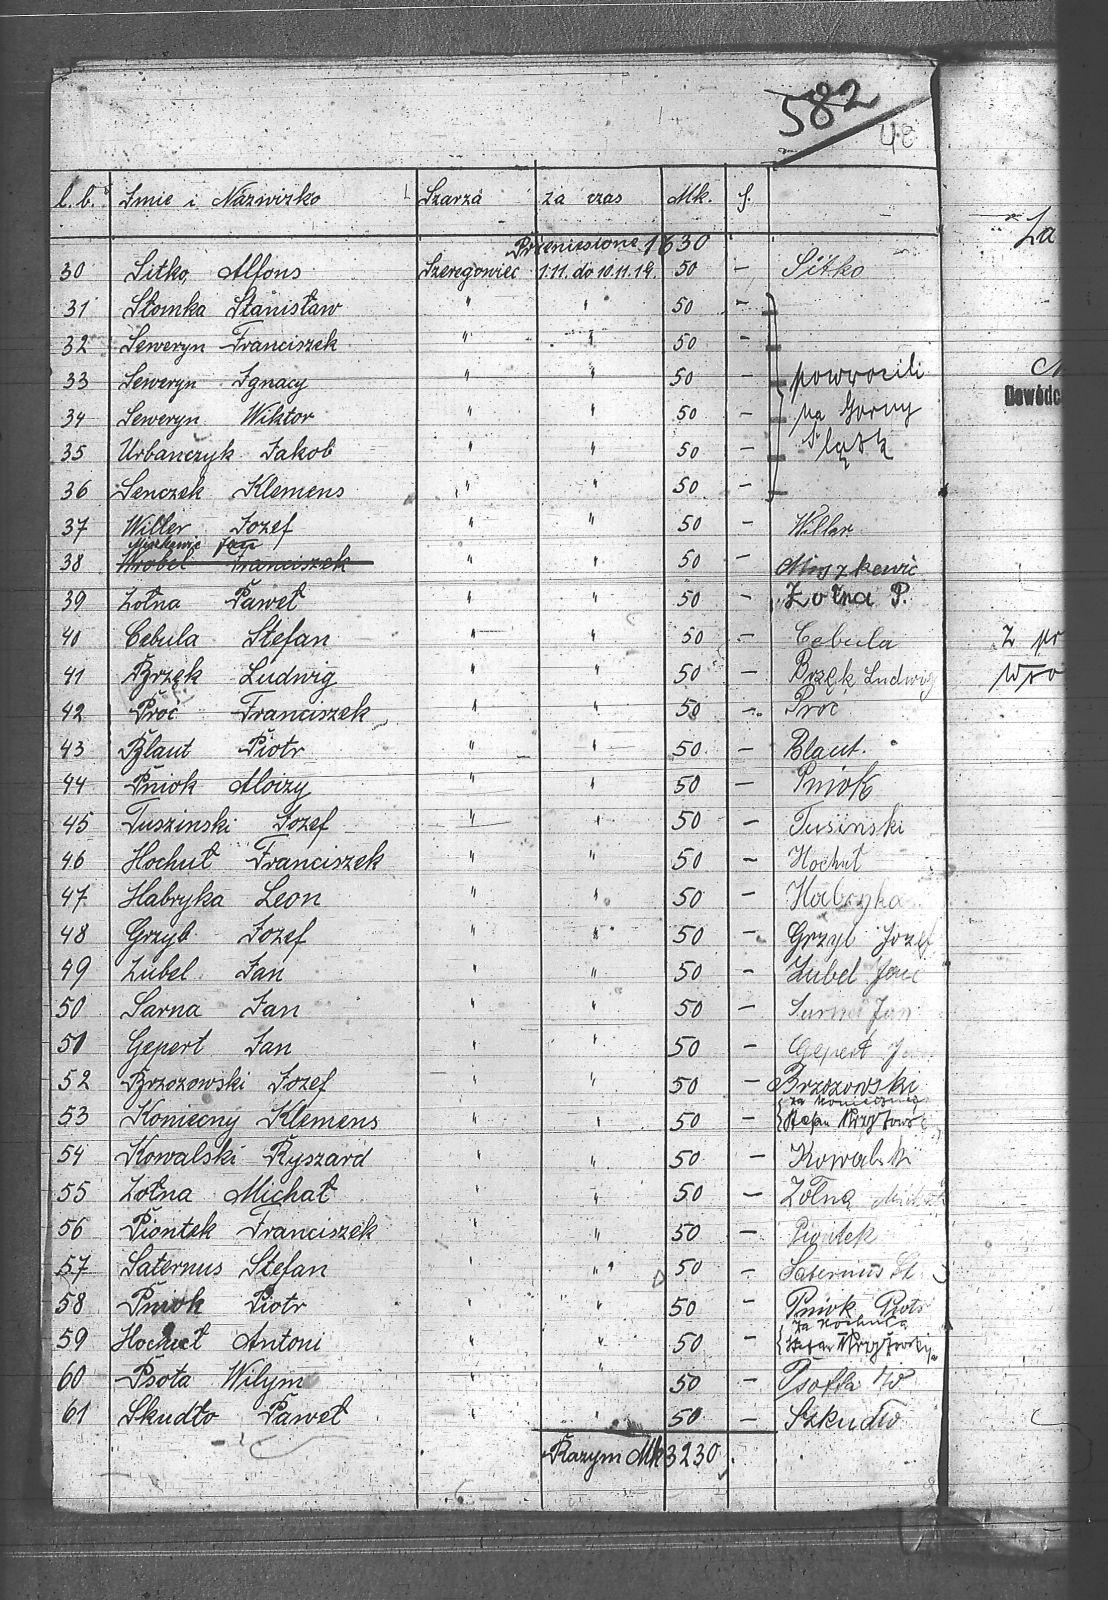 582
48
l.b. Imie i Nazwizko Szarza za czas Mk. f.
Przeniesione 1630
30 Sitko, Alfons Szeregowiec 1.11. do 10.11.19. 50 — Sitko
31 Słomka Stanisław " " 50 —
32 Seweryn Franciszek " " 50 —
33 Seweryn Ignacy " " 50 — powrocili
34 Seweryn Wiktor " " 50 — na Gorny
35 Urbańczyk Jakob " " 50 — Śląsk
36 Senczek Klemens " " 50 —
37 Willer Jozef " " 50 — Willer
Miszkewic Jan
38 Wrobel Franciszek " " 50 — Miszkewic
39 Zołna Paweł " " 50 — Zołna P.
40 Cebula Stefan " " 50 — Cebula
41 Brzęk Ludwig " " 50 — Brzęk Ludwig
42 Proć Franciszek " " 50 — Proc
43 Blaut Piotr " " 50 — Blaut.
44 Pniok Aloizy " " 50 — Pniok
45 Tuszinski Jozef " " 50 — Tusinski
46 Hochuł Franciszek " " 50 — Hochuł
47 Habryka Leon " " 50 — Habryka
48 Grzyb Jozef " " 50 — Grzyb Jozef
49 Zubel Jan " " 50 — Zubel Jan
50 Sarna Jan " " 50 — Sarna Jan
51 Gepert Jan " " 50 — Gepert Jan
52 Brzozowski Jozef " " 50 — Brzozowski
53 Koniecny Klemens " " 50 — za Koniecznego
Stefan
54 Kowalski Ryszard " " 50 — Kowalski
55 Zołna Michał " " 50 — Zołna Michał
56 Piontek Franciszek " " 50 — Piontek
57 Saternus Stefan " " 50 — Saternus St
58 Pniok Piotr " " 50 — Pniok Piotr
59 Hochuł Antoni " " 50 — za Hochuła
Stefan
60 Psota Wilym " " 50 — Psotta W
61 Skudło Paweł " " 50 — Szkudło
Razym Mk 3230
Za
Dowódc
Z pr
Wro